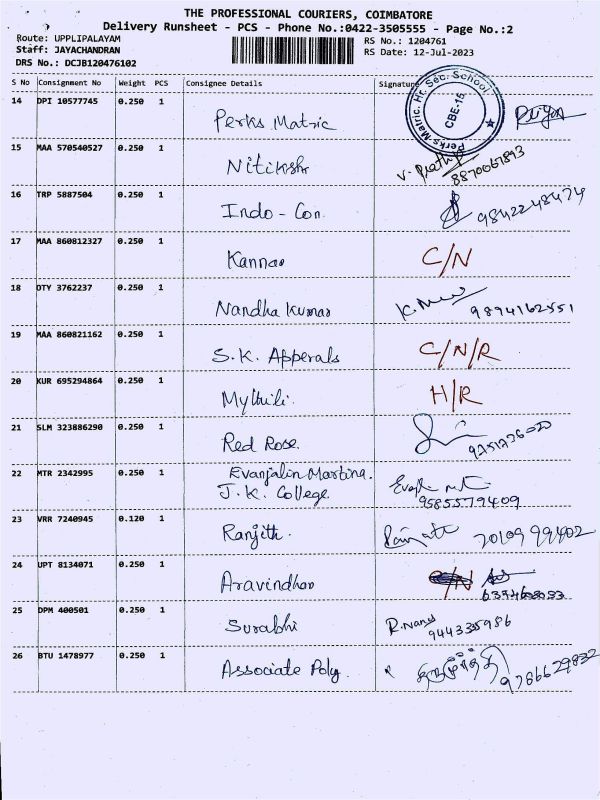 THE PROFESSIONAL COURIERS, COIMBATORE
Delivery Runsheet - PCS - Phone No.:0422-3505555 - Page No.:2
Route: UPPLIPALAYAM RS No.: 1204761
Staff: JAYACHANDRAN RS Date: 12-Jul-2023
DRS No.: DCJB120476102
S No Consignment No Weight PCS Consignee Details Signature
Perks Matric. Hr. Sec. School
CBE-15
14 DPI 10577745 0.250 1 Perks Matric Priya
15 MAA 570540527 0.250 1 Nitikshr 8870067893
16 TRP 5887504 0.250 1 Indo - Con. 9842248474
17 MAA 860812327 0.250 1 Kannan C/N
18 OTY 3762237 0.250 1 Nandha Kumar 9894162551
19 MAA 860821162 0.250 1 S.K. Apperals C/N/R
20 KUR 695294864 0.250 1 Mythili. H/R
21 SLM 323886290 0.250 1 Red Rose.
22 MTR 2342995 0.250 1 Evanjalin Martina.
J.K. College. 9585579409
23 VRR 7240945 0.120 1 Ranjith. 7010999402
24 UPT 8134071 0.250 1 Aravindhan
25 DPM 400501 0.250 1 Surabhi 9443335986
26 BTU 1478977 0.250 1 Associate Poly. 9786629832